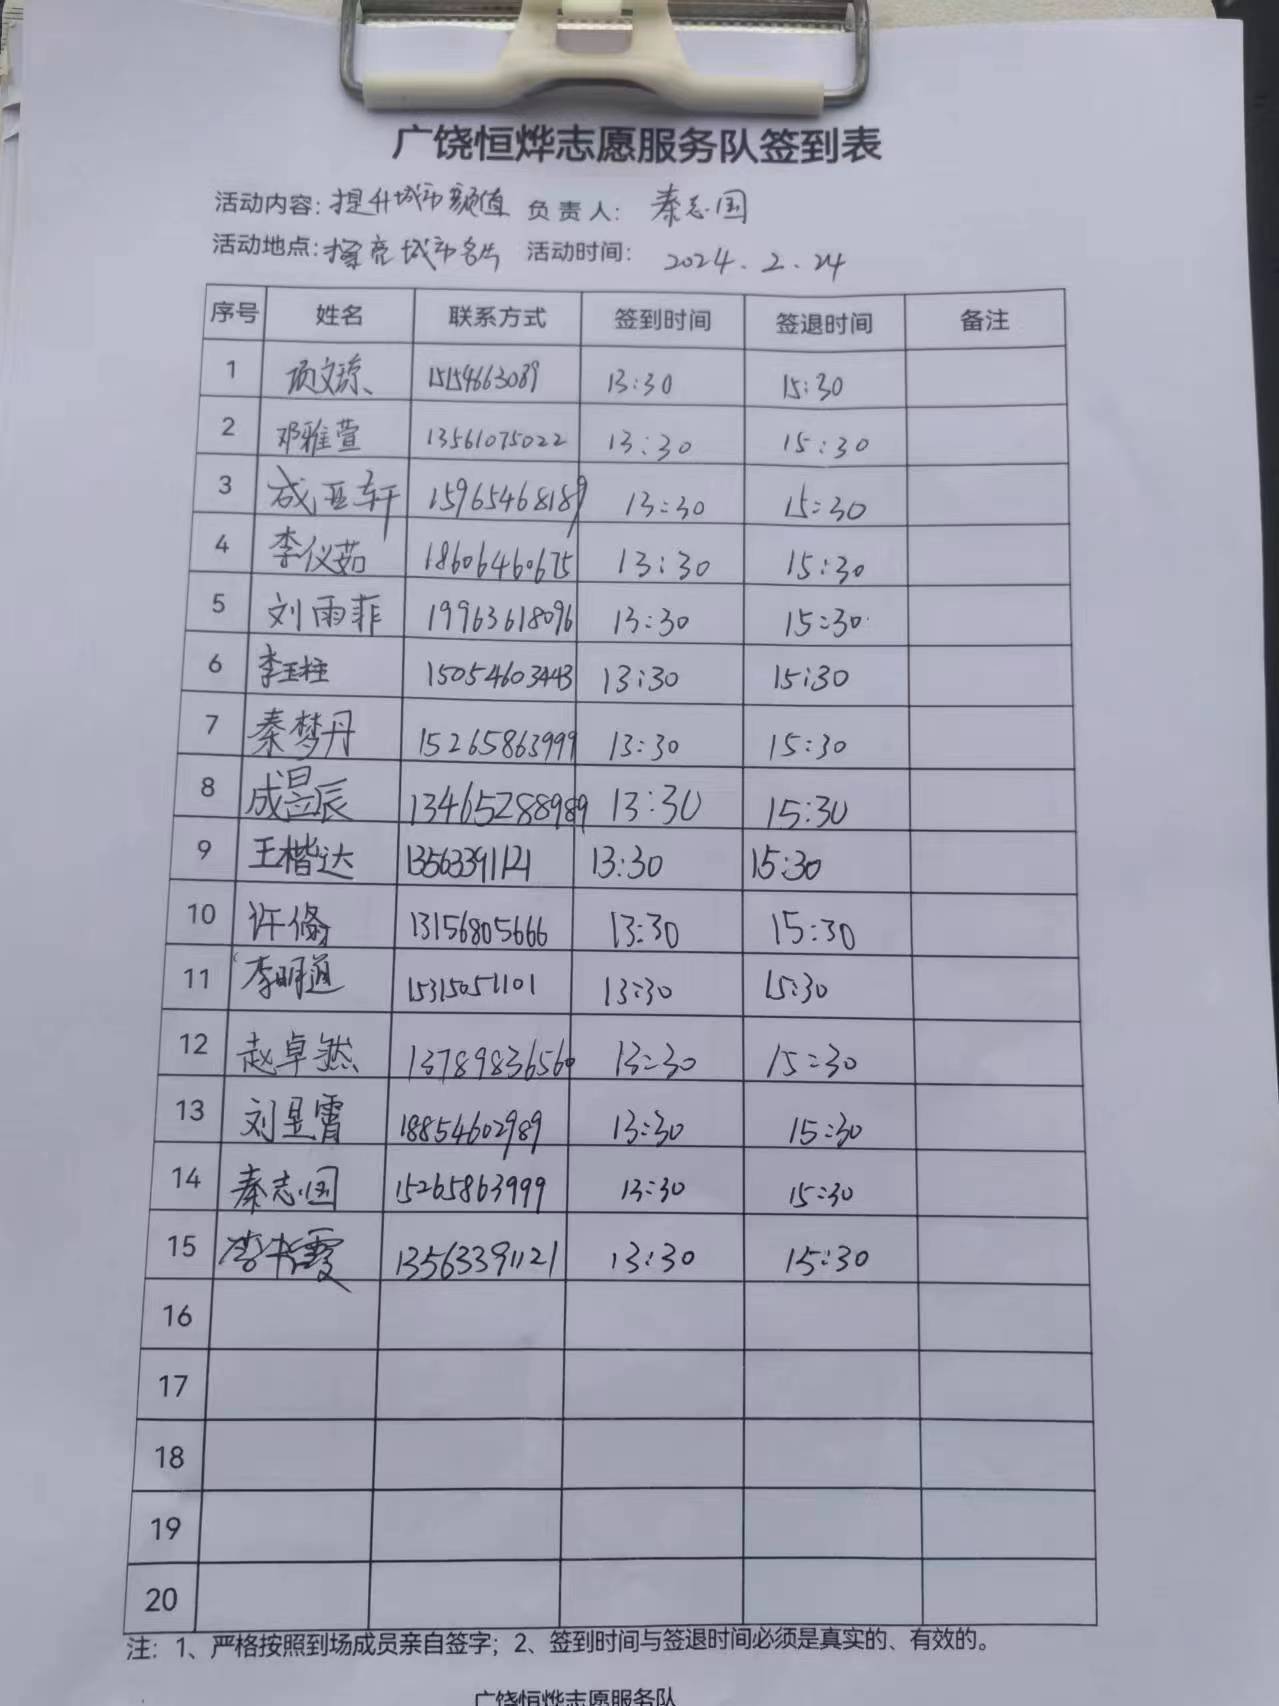 广饶恒烨志愿服务队签到表
活动内容:提升城市颜值 负责人: 秦志国
活动地点:擦亮城市名片 活动时间: 2024.2.24
序号 姓名 联系方式 签到时间 签退时间 备注
1 项文琼 15154663089 13:30 15:30
2 邓雅萱 13561075022 13:30 15:30
3 成亚轩 15965468189 13:30 15:30
4 李仪茹 18606460675 13:30 15:30
5 刘雨菲 19963618096 13:30 15:30
6 李玉柱 15054603443 13:30 15:30
7 秦梦丹 15265863999 13:30 15:30
8 成昱辰 13465288989 13:30 15:30
9 王楷达 13563391121 13:30 15:30
10 许脩 13156805666 13:30 15:30
11 李明道 15315051101 13:30 15:30
12 赵卓然 13789836560 13:30 15:30
13 刘昱霄 18854602989 13:30 15:30
14 秦志国 15265863999 13:30 15:30
15 李书霞 13563391121 13:30 15:30
16
17
18
19
20
注:1、严格按照到场成员亲自签字;2、签到时间与签退时间必须是真实的、有效的。
广饶恒烨志愿服务队